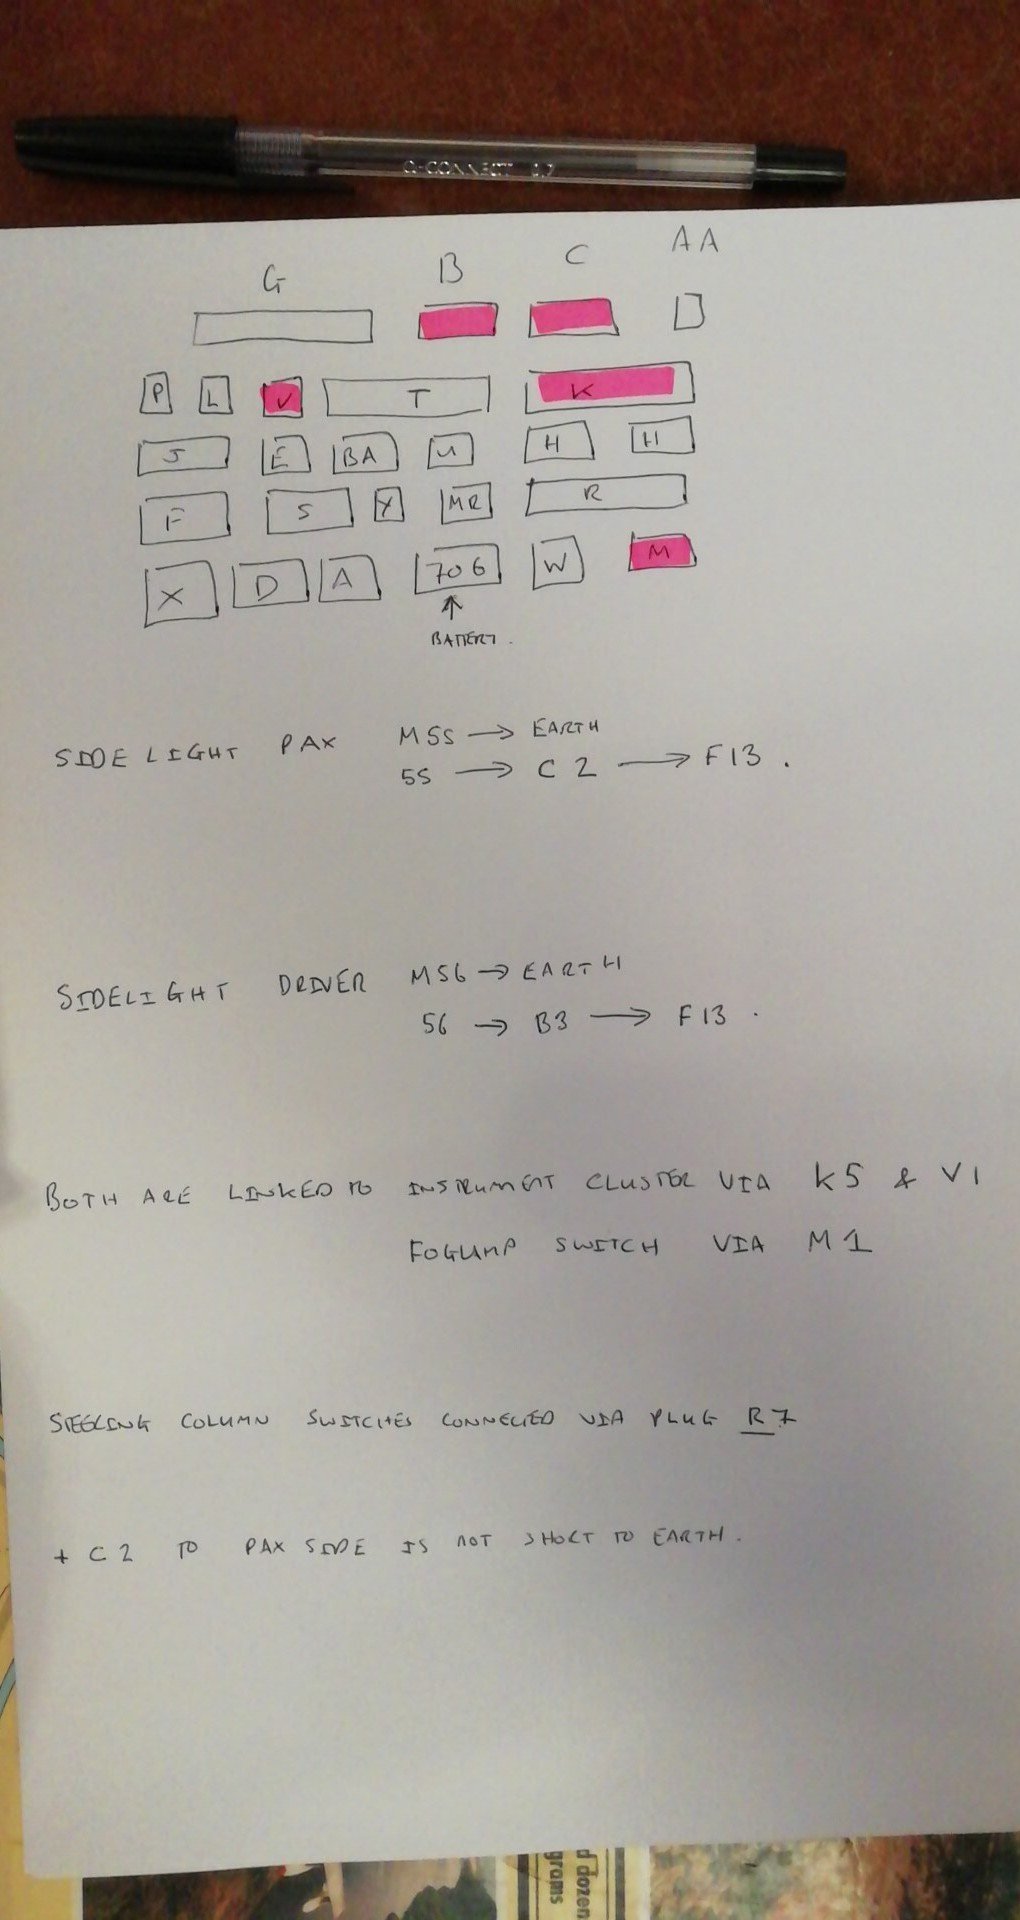 Q-CONNECT 0.7
G B C AA
P L V T K
J E BA U H H
F S Y MR R
X D A 706 W M
BATTERY.
SIDELIGHT PAX M55 → EARTH
55 → C2 → F13.
SIDELIGHT DRIVER M56 → EARTH
56 → B3 → F13.
BOTH ARE LINKED TO INSTRUMENT CLUSTER VIA K5 & V1
FOGLAMP SWITCH VIA M1
STEERING COLUMN SWITCHES CONNECTED VIA PLUG R7
+ C2 TO PAX SIDE IS NOT SHORT TO EARTH.
d dozen
grams